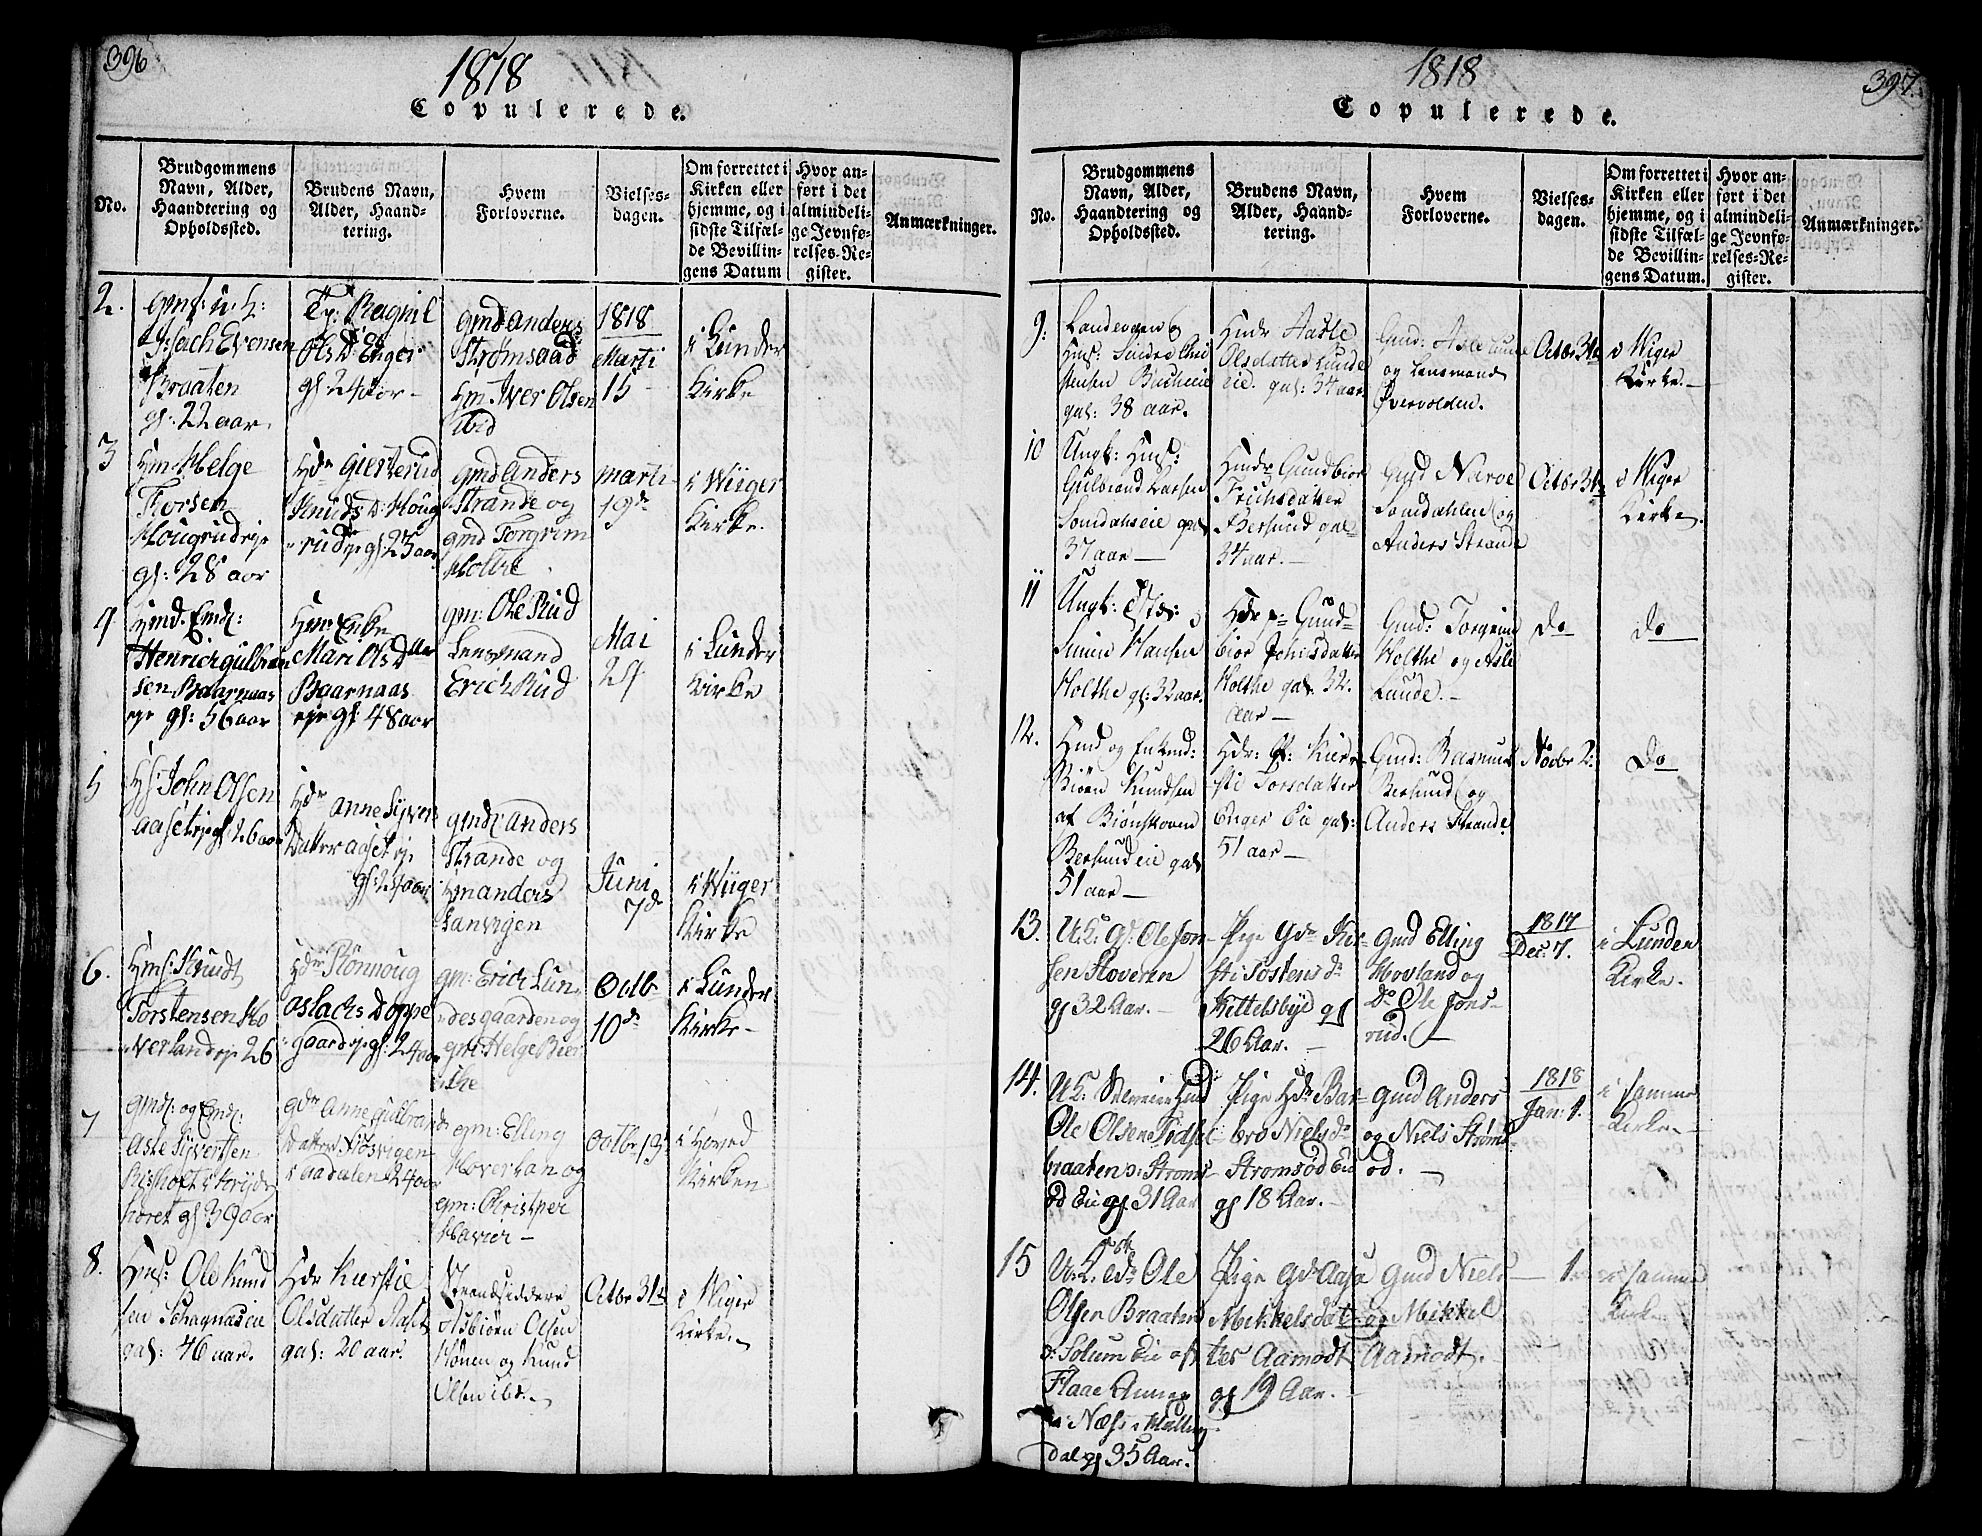 396
1818
Copulerede.
No.
Brudgommens Navn, Alder, Haandtering og Opholdssted.
Brudens Navn, Alder, Haandtering.
Hvem Forloverne.
Vielsesdagen.
Om forrettet i Kirken eller hjemme, og i sidste Tilfælde Bevillingens Datum
Hvor anført i det almindelige Jevnførelses-Register.
Anmærkninger.
2.
Evensen
Braaten
gl: 22 aar.
Ragnil
Ols D: Enger
gl 24 aar
gmd Anders
Strømsaad
Hm. Iver Olsen
ibid
1818
Marti
15
i Lunder
Kirke
3
Hm. Helge
Torsen
Hougrud eje
gl: 28 aar
Hdr Gierterud
Knuds D: Houg
rud eje gl 25 aar
gmd Anders
Strande og
gmd Torgrim
Holte
Marti
19de
i Wiiger
Kirke.
4
Henrich Gulbran
sen Baarnaas
eje gl: 56 aar
Hm. Enke
Mari Ols D
Baarnaas
eje gl: 48 aar
gm: Ole Rud
Lensmand
Erich Rud
Mai
24
i Lunder
Kirke
5
John Olsen
Aaset eje gl 26 aar
Hdr Anne Syvers
Datter Aaset eje
gl: 24 aar
gmd: Anders
Strande og
Hm Anders
Sanvigen
Juni
7de
i Wiiger
Kirke
6.
Hms: Knudt
Torstensen Ho
verland eje 26
Hdr Rønnoug
Aslachs D Oppe
gaard eje gl: 24 aar
gm: Erich Lun
desgaarden og
gm: Helge Bier
ke
Octb
10de
i Lunder
Kirke
7
gmd: og Emd:
Asle Syvertsen
gl 39 aar
gdr Anne Gulbrands
Datter Høsvigen
i Aadalen 24 aar
gm: Elling
Hoverlan og
gm: Christpher
Havier
Octbr 13
i Hoved
Kirken
8.
Hms: Ole Knud
sen Schagnæs eie
gal: 46 aar.
Hdr Kierstie
Olsdatter Aaset
gal: 20 aar.
Strandsiddere
Asbiørn Olsen
Hønen og Knud
Olsen ibd.
Octbr 31te
i Wiger
Kirke.
397.
1818
Copulerede.
No.
Brudgommens Navn, Alder, Haandtering og Opholdssted.
Brudens Navn, Alder, Haandtering.
Hvem Forloverne.
Vielsesdagen.
Om forrettet i Kirken eller hjemme, og i sidste Tilfælde Bevillingens Datum.
Hvor anført i det almindelige Jevnførelses-Register.
Anmærkninger.
9.
Landeværn og
Hms: Sindre Chri
stensen Bache eie
gal: 38 aar.
Hmdr Aasle
Olsdatter Lunde
eie. gal: 34 aar
Gmd: Asle Lunde
og Lensmand
Øvervolden.
Octbr 31te
i Wiger
Kirke.
10
Ungk: Hms:
Gulbrand Larsen
Somdals eie gal
37 aar
Hmdr Gundbior
Erichsdatter
Bersund gal
34 aar.
Gmd Narve
Somdahlen og
Anders Strande
Octbr 31te
i Wiger
Kirke.
11
Ungk:
Simen Hansen
Holthe gl: 32 aar.
Hdr p= Gund-
bior Johisdatter
Holthe gal. 32.
Aar
Gmd: Torgrim
Holthe og Asle
Lunde.
do
do
12.
Hmd og Enkemd:
Biørn Knudsen
af Biønskoven
Bersund eie gal
51 aar
Hdr: Kier-
sti Torsdatter
Enger Eie gal:
51 aar
Gmd: Rasmus
Bersund og
Anders Strande
Novbr 2:
do
13.
U: K: G: Ole Jon-
sen Hoveren
gl 32 Aar.
Pige Gdr Kir-
sti Tostens dr
Kittelsbye gl
26 Aar.
Gmd Elling
Hovland og
Do Ole Jons-
rud.
1817
Dec: 7.
i Lunden
Kirke.
14.
U: K:
Ole Olsen
braaten o: Stroms-
od Eie gl 31 Aar
Pige Hdr Bar-
bro Niels dr
Stromsød Eie
gl 18 Aar.
Gmd Anders
og Niels Strøms-
od.
1818
Jan: 1.
i samme
Kirke.
15
U: K. Ole
Olsen Braaten
o: Solum Eie af
Flaae Annex
i Næss i Halling
dal gl 35 Aar.
Pige Gdr Aase
Mikkelsdat-
ter Aamodt
gl 19 Aar.
Gmd Niels
og Mikkel
Aamodt.
1.
i samme
Kirke.